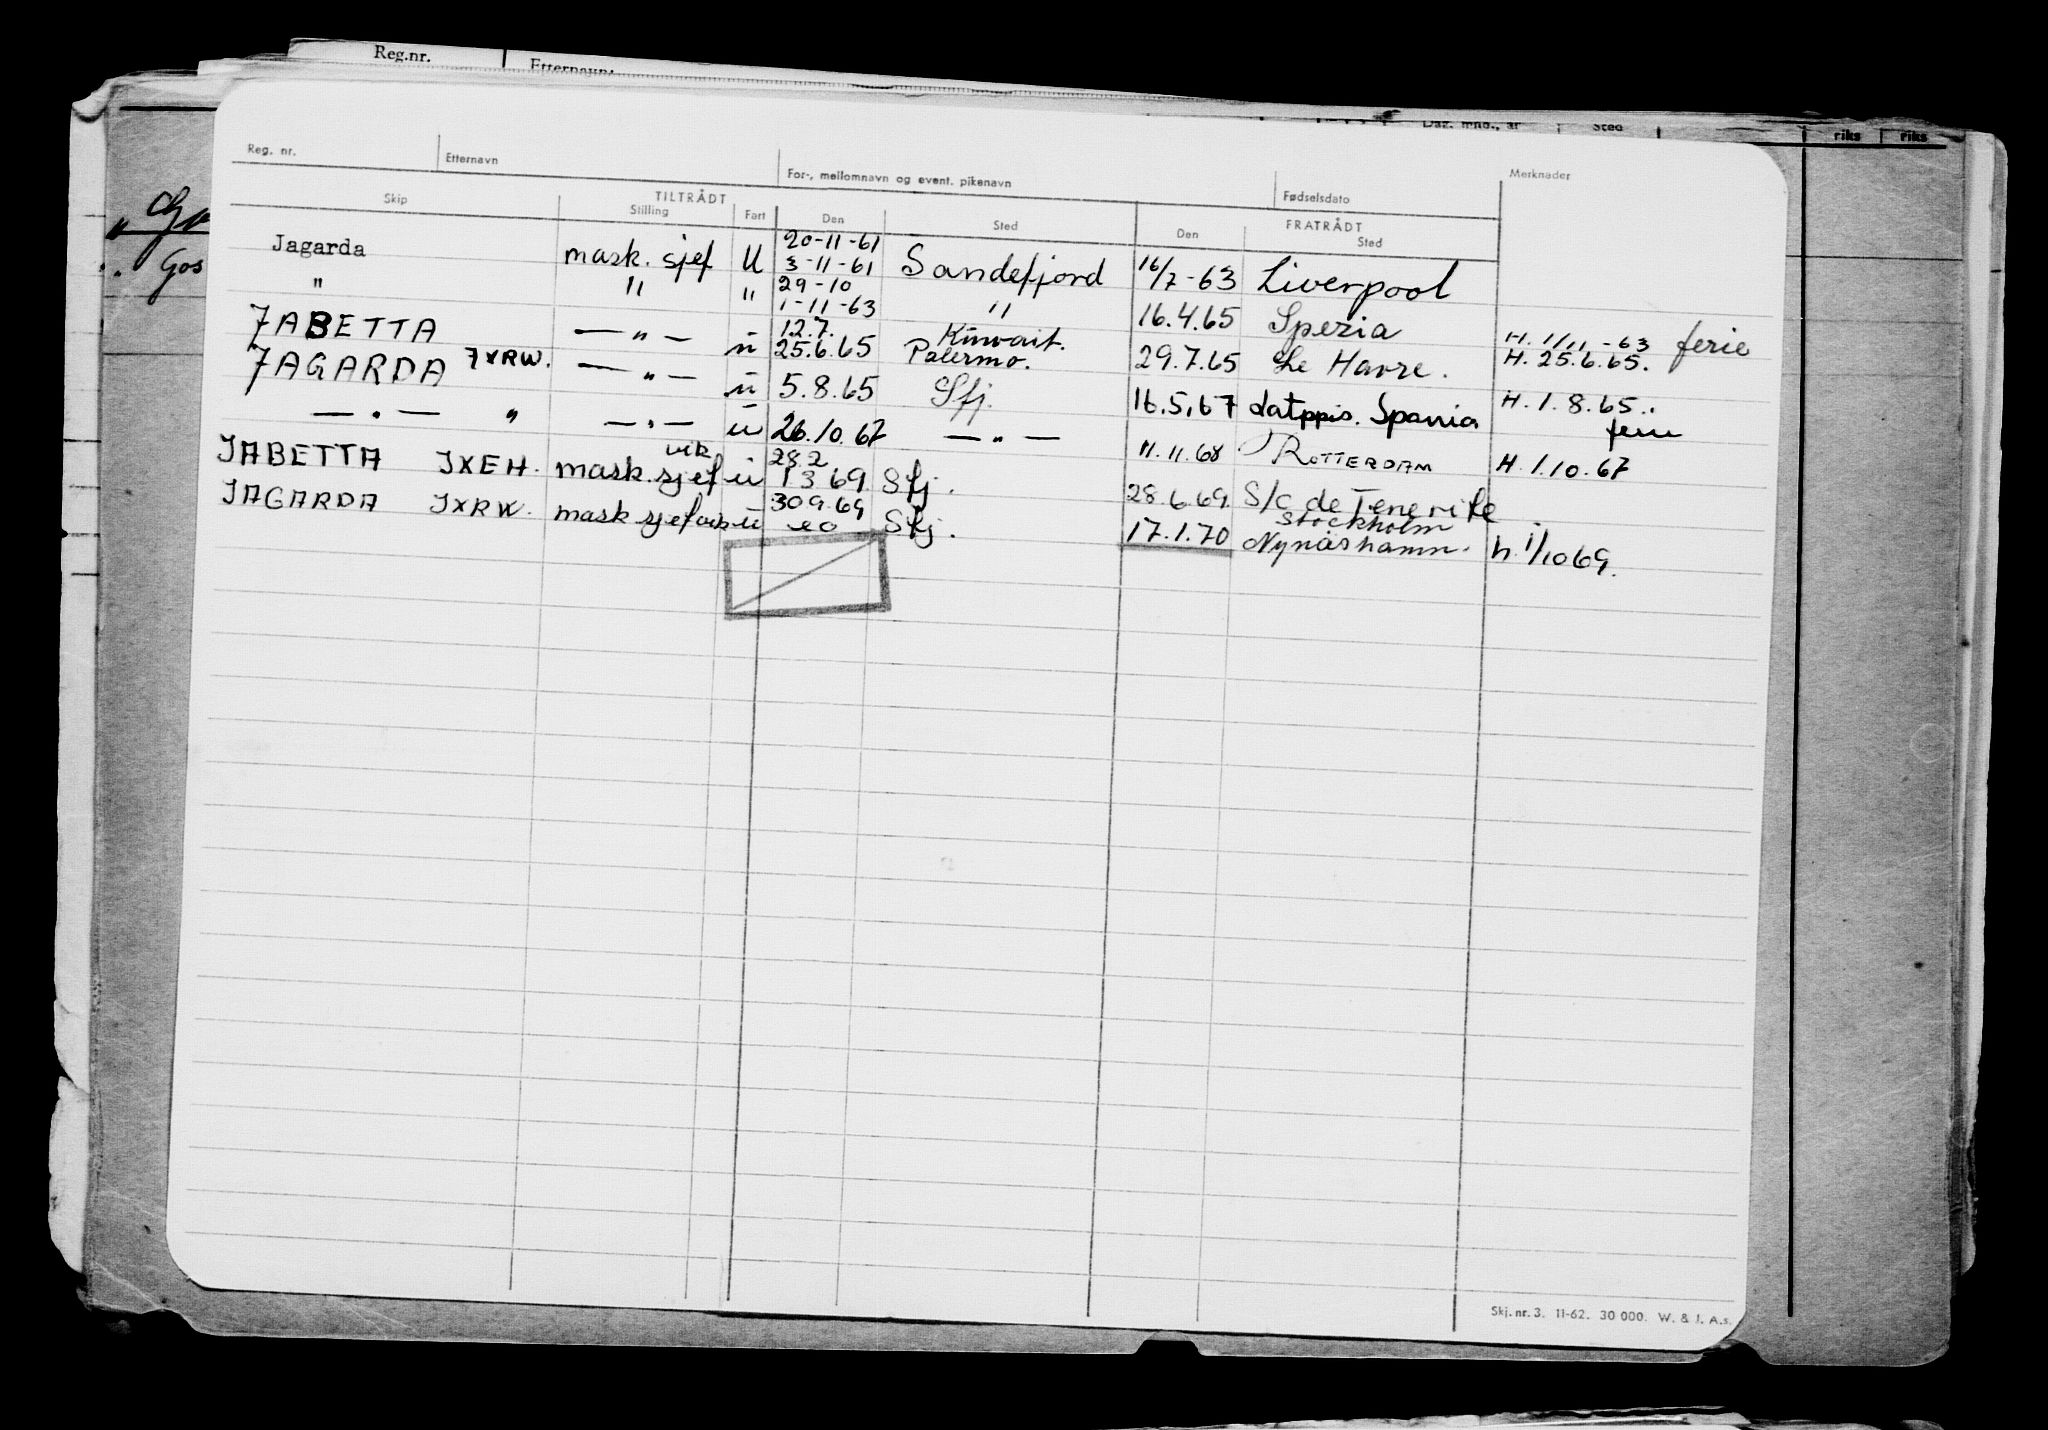 Reg.nr. Etternavn:
Dag, mnd., år Sted riks riks
Reg. nr. Etternavn For-, mellomnavn og event. pikenavn Fødselsdato Merknader
TILTRÅDT FRATRÅDT
Skip Stilling Fart Den Sted Den Sted
20-11-61
Jagarda mask. sjef U 3-11-61 Sandefjord 16/7-63 Liverpool
29-10
" " " 1-11-63 " 16.4.65 Spezia H. 1/11-63 ferie
12.7. Kuwait.
JABETTA — " — u 25.6.65 Palermo. 29.7.65 Le Havre. H. 25.6.65.
JAGARDA JXRW. — " — u 5.8.65 Sfj. 16.5.67 Spania H. 1.8.65.
ferie
— " — " — " — u 26.10.67 — " — 11.11.68 ROTTERDAM H. 1.10.67
vik 28.2
JABETTA JXEH. mask. sjef u 1 3 69 Sfj. 28.6.69 S/c de Tenerife
30.9.69 Stockholm
JAGARDA JXRW. mask sjef vik u Sfj. 17.1.70 Nynäshamn. h. 1/10 69.
Gos
Skj. nr. 3. 11-62. 30 000. W. & J. A.s.